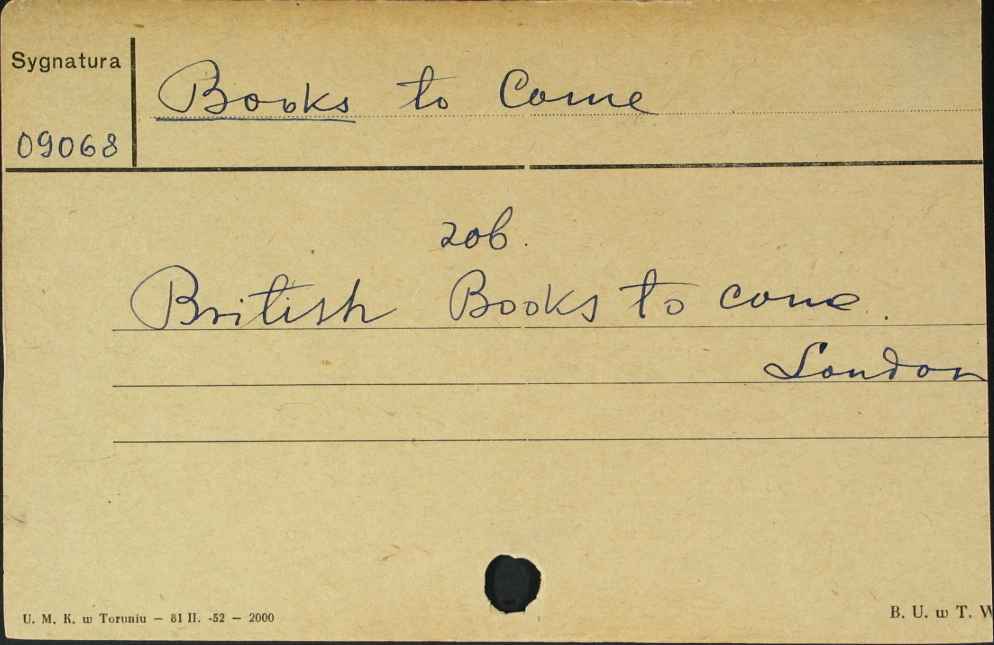 Sygnatura
Books to Come
09068
zob.
British Books to come.
London
U. M. K. w Toruniu — 81 II. -52 — 2000
B. U. w T. W